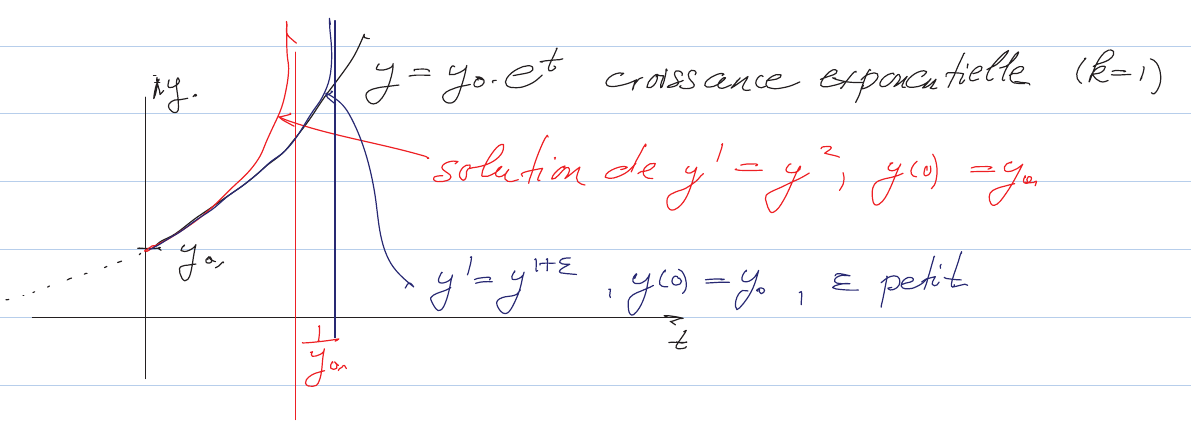 y.
y = y₀·eᵗ croissance exponentielle (k=1)
solution de y' = y², y(0) = y₀,
y₀,
y' = y¹⁺ᵋ , y(0) = y₀ , ε petit
t
1/y₀,